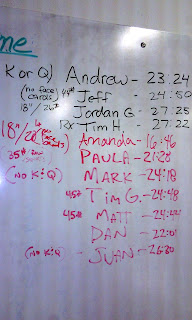 me
K or Q) Andrew - 23:24
(no face cards) 44# Jeff - 24:50
18"/26# Jordan G - 27:25
Rx Tim H. - 27:22
18"/26# Amanda - 16:46
35# PAULA - 21:20
(NO K:Q) MARK - 24:18
45# TIM G. - 24:48
45# MATT - 24:44
DAN - 22:01
(NO K:Q) JUAN - 26:30